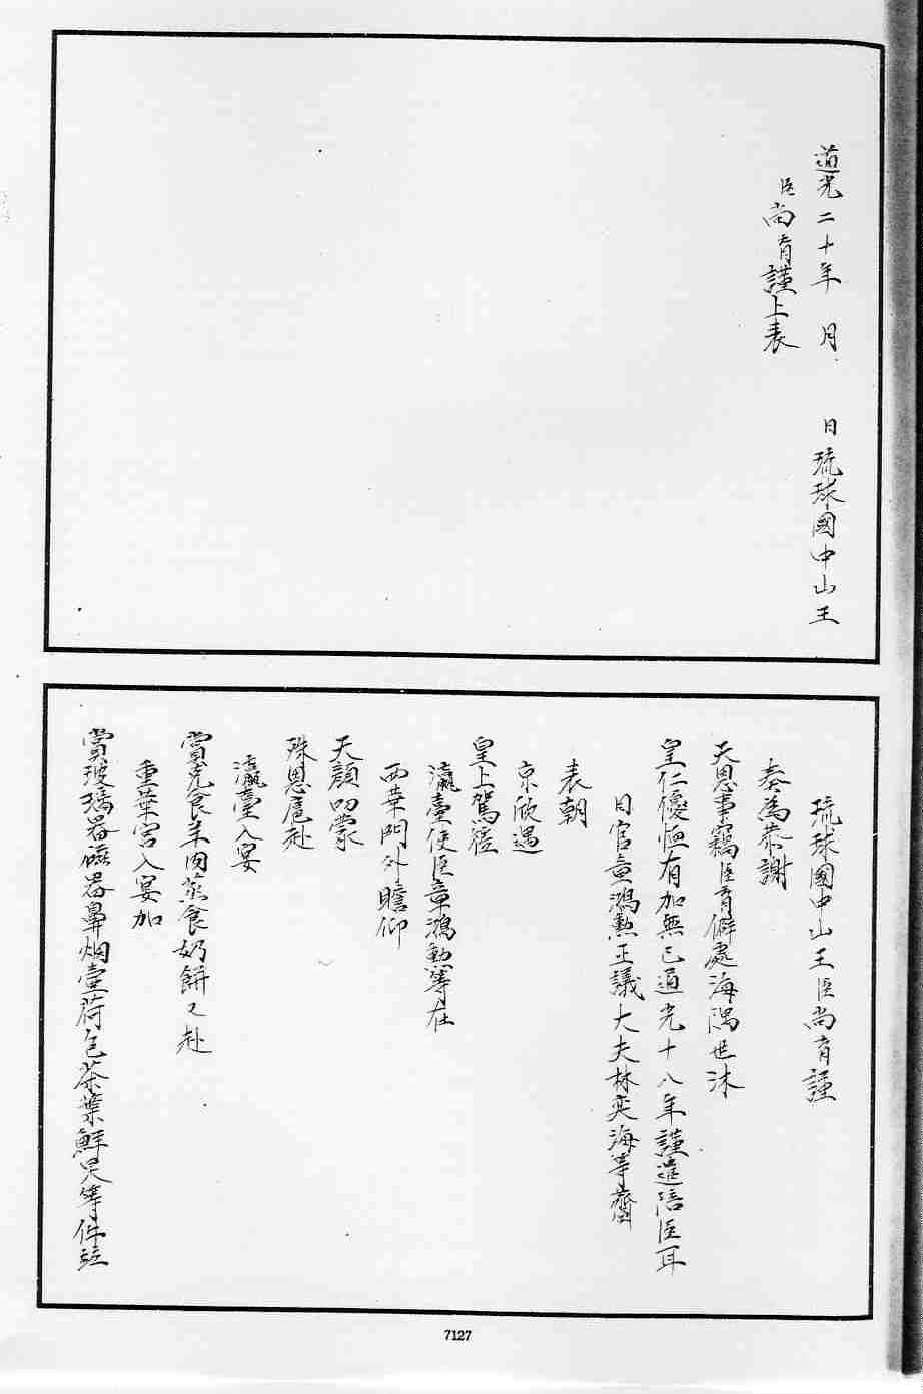 道光二十年 月 日琉球國中山王
臣尚育謹上表
琉球國中山王臣尚育謹
奏為恭謝
天恩事竊臣育僻處海隅世沐
皇仁優恤有加無已道光十八年謹遣陪臣耳
目官章鴻勲正議大夫林奕海等齎
表朝
京欣遇
皇上駕經
瀛臺使臣章鴻勲等在
西華門外瞻仰
天顔叨蒙
殊恩扈赴
瀛臺入宴
賞克食羊肉蒸食奶餅又赴
重華宮入宴加
賞玻璃器磁器鼻烟壺荷包茶葉鮮果等件竝
7127